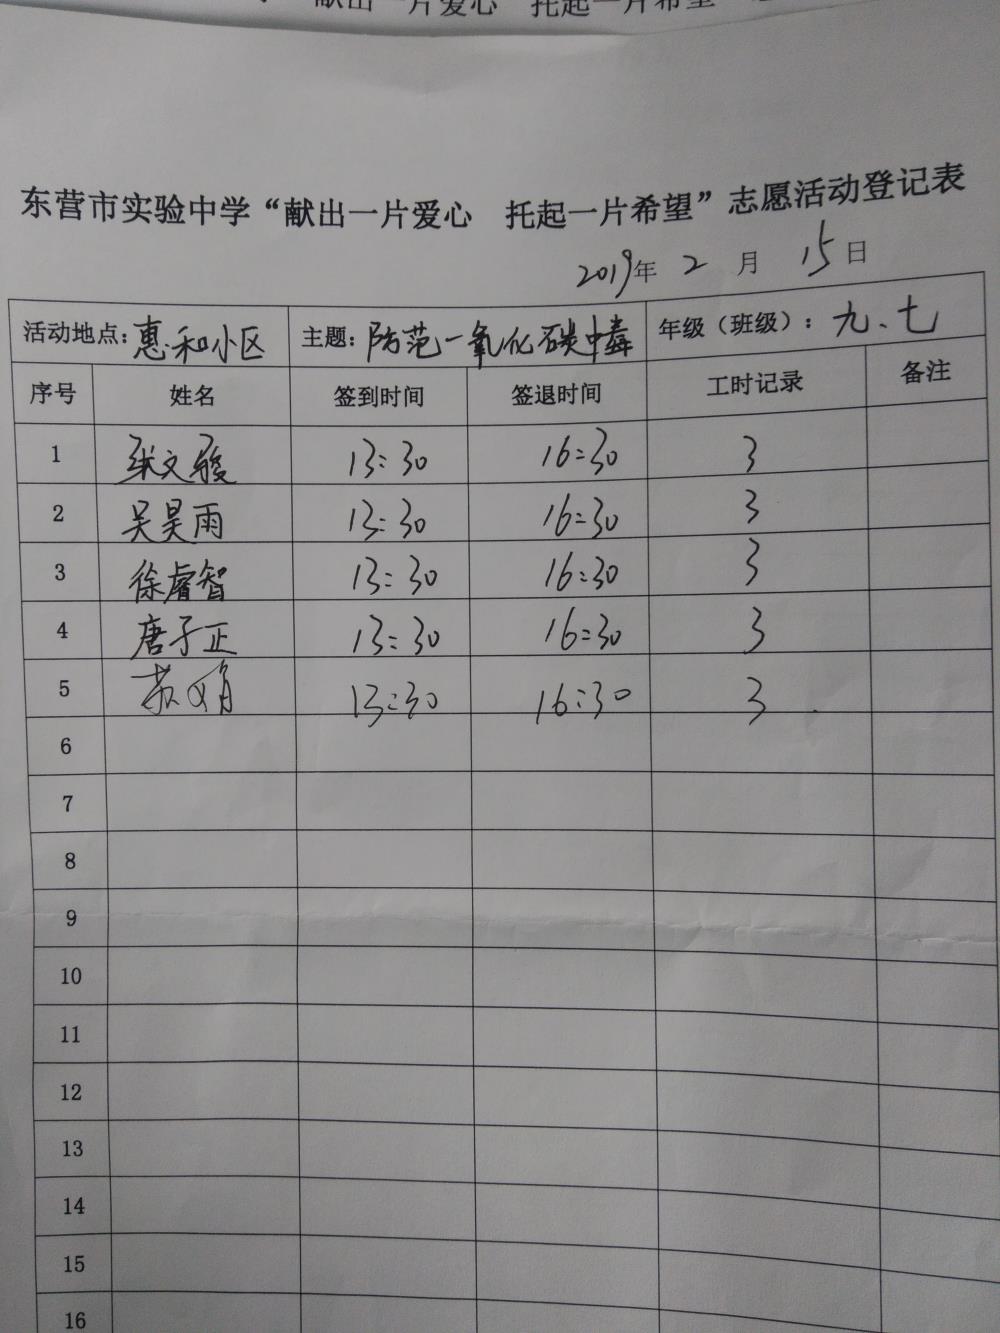 献出一片爱心 托起一片希望
东营市实验中学“献出一片爱心 托起一片希望”志愿活动登记表
2019年 2 月 15日
活动地点：惠和小区 主题：防范一氧化碳中毒 年级（班级）：九、七
序号 姓名 签到时间 签退时间 工时记录 备注
1 张文骏 13:30 16:30 3
2 吴昊雨 13:30 16:30 3
3 徐睿智 13:30 16:30 3
4 唐子正 13:30 16:30 3
5 苏 13:30 16:30 3
6
7
8
9
10
11
12
13
14
15
16